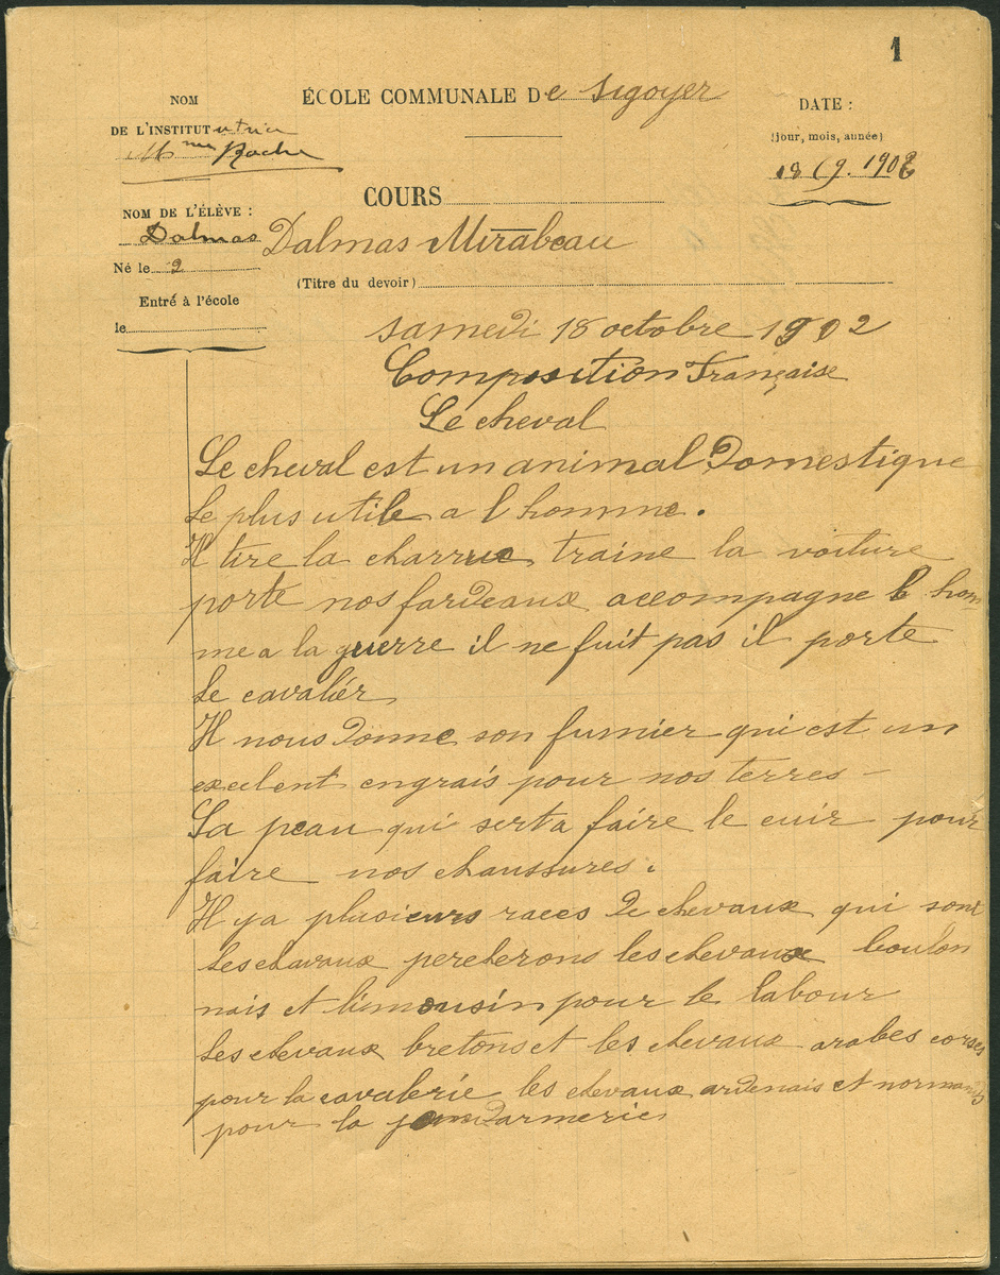 1
ÉCOLE COMMUNALE De Sigoyer
NOM
DE L'INSTITUTutrice
Mme Roche
DATE :
(jour, mois, année)
18 (9. 1902
COURS
NOM DE L'ÉLÈVE :
Dalmas Dalmas Mirabeau
Né le 2
(Titre du devoir)
Entré à l'école
le
samedi 18 octobre 1902
Composition Française
Le cheval
Le cheval est un animal Domestique
le plus utile a l homme.
Il tire la charrue traine la voiture
porte nos fardeaux accompagne l hom
me a la guerre il ne fuit pas il porte
le cavaliér
Il nous donne son fumier qui est un
exelent engrais pour nos terres –
Sa peau qui sert a faire le cuir pour
faire nos chaussures.
Il ya plusieurs races de chevaux qui sont
les chavaux percherons les chevaux boulon
nais et limousin pour le labour
les chevaux bretons et les chevaux arabes corses
pour la cavalerie les chevaux ardenais et normands
pour la jendarmerie